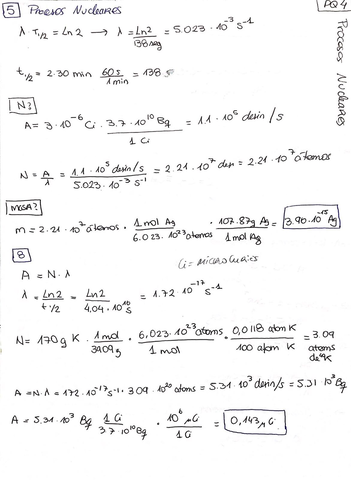 5 Procesos Nucleares
PQ4
Procesos Nucleares
λ · T1/2 = Ln2 → λ = Ln2 / 138 seg = 5.023 · 10^-3 s^-1
t1/2 = 2.30 min · 60 s / 1 min = 138 s
N?
A = 3 · 10^-6 Ci · 3.7 · 10^10 Bq / 1 Ci = 1.1 · 10^5 desin/s
N = A/λ = 1.1 · 10^5 desin/s / 5.023 · 10^-3 s^-1 = 2.21 · 10^7 des = 2.21 · 10^7 átomos
MASA?
m = 2.21 · 10^7 átomos · 1 mol Ag / 6.023 · 10^23 atomos · 107.87g Ag / 1 mol Ag = 3.90 · 10^-15 Ag
8
Ci = MICROCURIES
A = N · λ
λ = Ln2 / t1/2 = Ln2 / 4.04 · 10^16 s = 1.72 · 10^-17 s^-1
N = 170 g K · 1 mol / 39.09 g · 6.023 · 10^23 atoms / 1 mol · 0,0118 atom K / 100 atom K = 3.09
atoms
de K
A = N · λ = 1.72 · 10^-17 s^-1 · 3.09 · 10^20 atoms = 5.31 · 10^3 desin/s = 5.31 10^3 Bq
A = 5.31 · 10^3 Bq 1 Ci / 3.7 · 10^10 Bq · 10^6 μCi / 1 Ci = 0,143 μCi